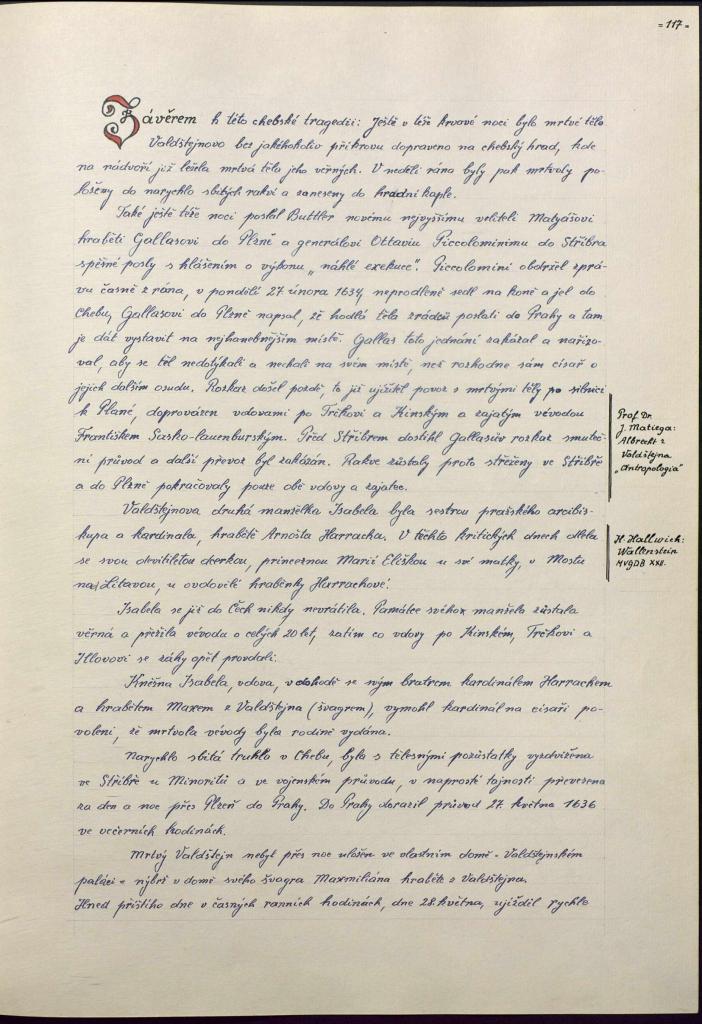 = 117 =
Závěrem k této chebské tragedii: Ještě v téže krvavé noci bylo mrtvé tělo
Valdštejnovo bez jakéhokoliv příkrovu dopraveno na chebský hrad, kde
na nádvoří již ležela mrtvá těla jeho věrných. V neděli rána byly pak mrtvoly po-
loženy do narychlo sbitých rakví a zaneseny do hradní kaple.
Také ještě téže noci poslal Buttler novému nejvyššímu veliteli Matyášovi
hraběti Gallasovi do Plzně a generálovi Ottaviu Piccolominimu do Stříbra
spěšné posly s hlášením o výkonu „náhlé exekuce". Piccolomini obdržel zprá-
vu časně z rána, v pondělí 27. února 1634, neprodleně sedl na koně a jel do
Chebu, Gallasovi do Plzně napsal, že hodlá těla zrádců poslati do Prahy a tam
je dát vystavit na nejhanebnějším místě. Gallas toto jednání zakázal a nařizo-
val, aby se těl nedotýkali a nechali na svém místě, než rozhodne sám císař o
jejich dalším osudu. Rozkaz došel pozdě, to již ujížděl povoz s mrtvými těly po silnici
k Plané, doprovázen vdovami po Trčkovi a Kinským a zajatým vévodou
Františkem Sasko-Lauenburským. Před Stříbrem dostihl Gallasův rozkaz smuteč-
ní průvod a další převoz byl zakázán. Rakve zůstaly proto střeženy ve Stříbře
a do Plzně pokračovaly pouze obě vdovy a zajatec.
Prof. Dr.
J. Matiega:
Albrecht z
Valdštejna
„Antropologia"
Valdštejnova druhá manželka Isabela byla sestrou pražského arcibis-
kupa a kardinála, hraběte Arnošta Harracha. V těchto kritických dnech dlela
se svou devítiletou dcerkou, princeznou Marií Eliškou u své matky, v Mostu
nad Litavou, u ovdovělé hraběnky Harrachové.
H. Hallwich:
Wallenstein
MVGDB XXII.
Isabela se již do Čech nikdy nevrátila. Památce svého manžela zůstala
věrná a přežila vévodu o celých 20 let, zatím co vdovy po Kinském, Trčkovi a
Illovovi se záhy opět provdali.
Kněžna Isabela, vdova, v dohodě se svým bratrem kardinálem Harrachem
a hrabětem Maxem z Valdštejna (švagrem), vymohl kardinál na císaři po-
volení, že mrtvola vévody byla rodině vydána.
Narychlo sbitá truhla v Chebu, byla s tělesnými pozůstatky vyzdvižena
ve Stříbře u Minoritů a ve vojenském průvodu, v naprosté tajnosti převezena
za den a noc přes Plzeň do Prahy. Do Prahy dorazil průvod 27. května 1636
ve večerních hodinách.
Mrtvý Valdštejn nebyl přes noc uložen ve vlastním domě - Valdštejnském
paláci - nýbrž v domě svého švagra Maxmiliána hraběte z Valdštejna.
Hned příštího dne v časných ranních hodinách, dne 28. května, ujížděl rychle